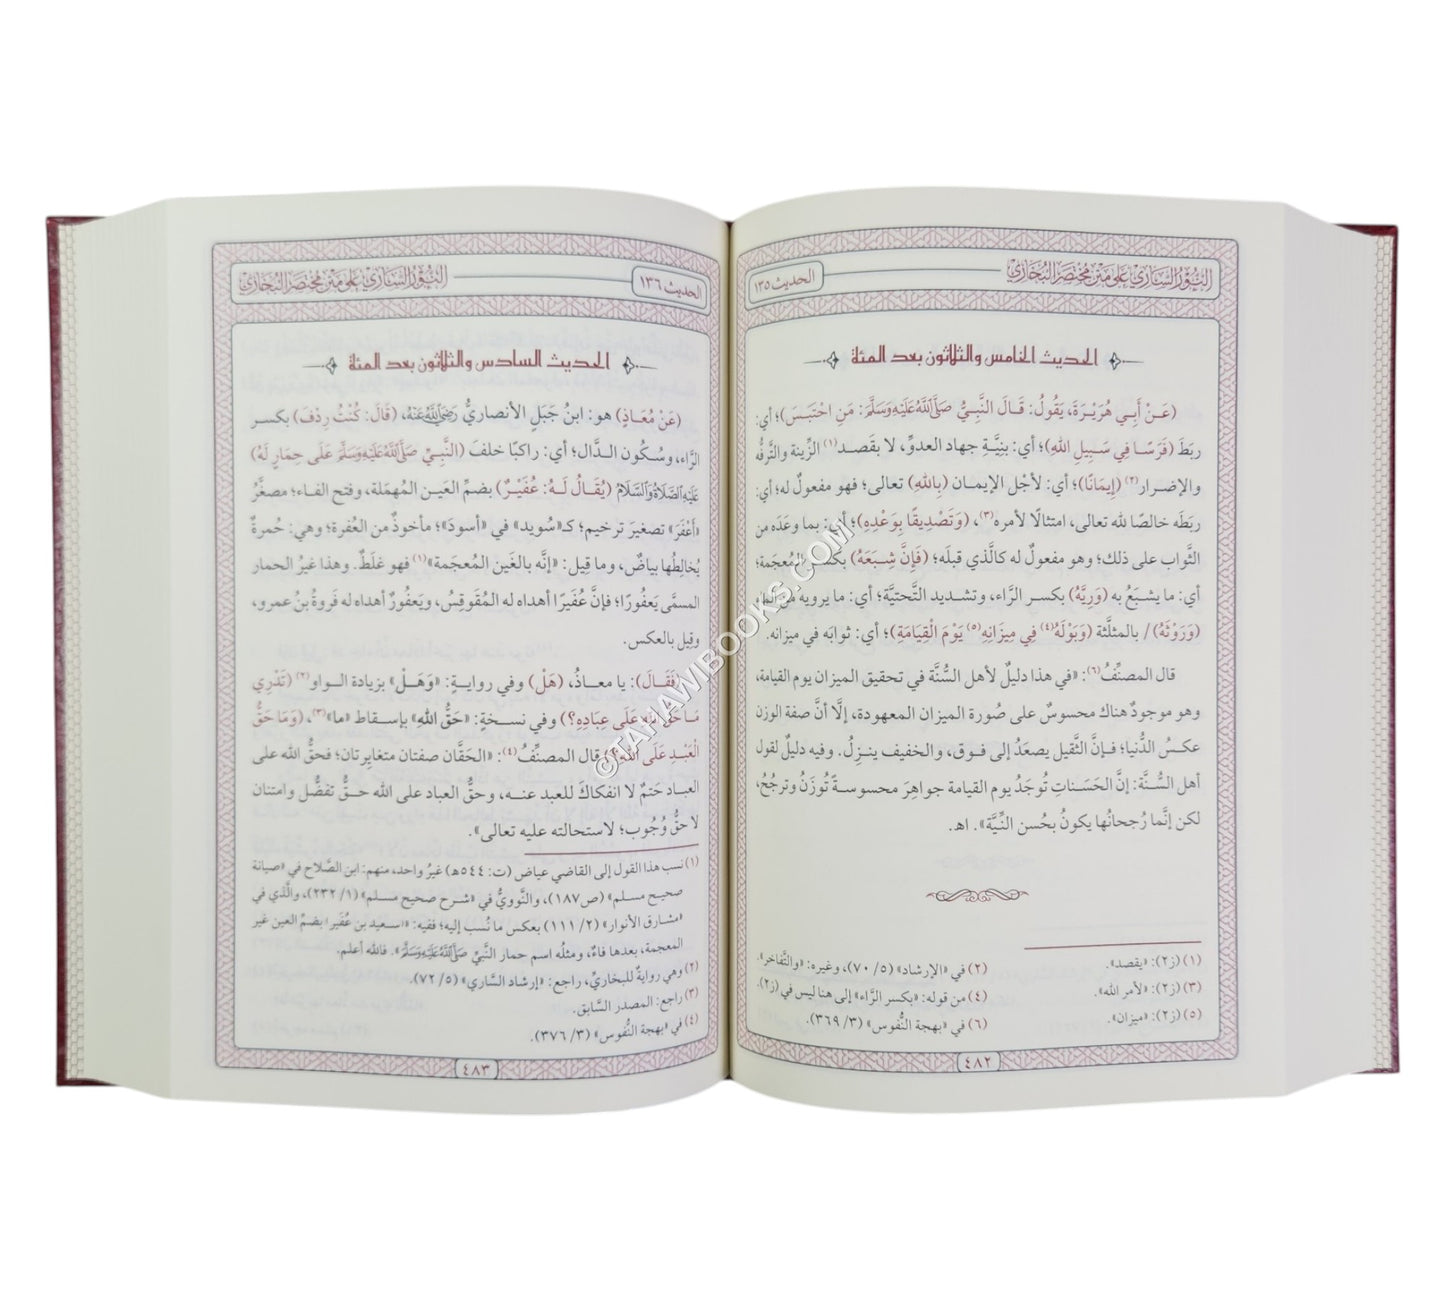 النور الساري على متن مختصر البخاري
الحديث ١٣٥
الحديث الخامس والثلاثون بعد المئة
(عَنْ أَبِي هُرَيْرَةَ، يَقُولُ: قَالَ النَّبِيُّ صَلَّى اللَّهُ عَلَيْهِ وَسَلَّمَ: مَنِ احْتَبَسَ)؛ أي:
ربَطَ (فَرَسًا فِي سَبِيلِ اللهِ)؛ أي: بنِيَّةِ جهاد العدوِّ، لا بقَصد(١) الزِّينة والتَّرفُّه
والإضرار(٢) (إِيمَانًا)؛ أي: لأجْل الإيمان (بِاللهِ) تعالى؛ فهو مفعولٌ له؛ أي:
ربَطَه خالصًا لله تعالى، امتثالًا لأمره(٣)، (وَتَصْدِيقًا بِوَعْدِهِ)؛ أي: بما وعَدَه من
الثَّواب على ذلك؛ وهو مفعولٌ له كالَّذي قبلَه؛ (فَإِنَّ شِبَعَهُ) بكسر المُعجَمة؛
أي: ما يشبَعُ به (وَرِيَّهُ) بكسر الرَّاء، وتشديد التَّحتيَّة؛ أي: ما يرويه من الماء
(وَرَوْثَهُ) / بالمثلَّثة (وَبَوْلَهُ(٤) فِي مِيزَانِهِ(٥) يَوْمَ الْقِيَامَةِ)؛ أي: ثوابَه في ميزانه.
قال المصنِّفُ(٦): «في هذا دليلٌ لأهل السُّنَّة في تحقيق الميزان يوم القيامة،
وهو موجودٌ هناك محسوسٌ على صُورة الميزان المعهودة، إلَّا أنَّ صفة الوزن
عكسُ الدُّنيا؛ فإنَّ الثَّقيل يصعَدُ إلى فوق، والخفيف ينزِلُ. وفيه دليلٌ لقول
أهل السُّنَّة: إنَّ الحَسَناتِ تُوجَدُ يوم القيامة جواهرَ محسوسةً تُوزَنُ وترجُحُ،
لكن إنَّما رُجحانُها يكونُ بحُسن النِّيَّة». اهـ.
(١) (ز٢): «يقصد».
(٢) في «الإرشاد» (٥/ ٧٠)، وغيره: «والتَّفاخر».
(٣) (ز٢): «لأمر الله».
(٤) من قوله: «بكسر الرَّاء» إلى هنا ليس في (ز٢).
(٥) (ز٢): «ميزان».
(٦) في «بهجة النُّفوس» (٣/ ٣٦٩).
٤٨٢
النور الساري على متن مختصر البخاري
الحديث ١٣٦
الحديث السادس والثلاثون بعد المئة
(عَنْ مُعَاذٍ) هو: ابنُ جَبَلٍ الأنصاريُّ رَضِيَ اللَّهُ عَنْهُ، (قَالَ: كُنْتُ رِدْفَ) بكسر
الرَّاء، وسُكُون الدَّال؛ أي: راكبًا خلفَ (النَّبِيِّ صَلَّى اللَّهُ عَلَيْهِ وَسَلَّمَ عَلَى حِمَارٍ لَهُ)
عَلَيْهِ الصَّلَاةُ وَالسَّلَامُ (يُقَالُ لَهُ: عُفَيْرٌ) بضمِّ العَين المُهمَلة، وفتح الفاء؛ مصغَّرُ
«أَعْفَرَ» تصغيرَ ترخيم؛ كـ«سُويد» في «أسودَ»؛ مأخوذٌ من العُفرة؛ وهي: حُمرةٌ
يُخالِطُها بياضٌ، وما قِيل: «إنَّه بالغَين المُعجَمة»(١) فهو غلَطٌ. وهذا غيرُ الحمار
المسمَّى يَعفُورًا؛ فإنَّ عُفَيرًا أهداه له المُقَوقِسُ، ويَعفُورٌ أهداه له فَروةُ بنُ عمرو،
وقِيل بالعكس.
(فَقَالَ): يا معاذُ، (هَلْ) وفي روايةٍ: «وَهَلْ» بزيادة الواو(٢) (تَدْرِي
مَا حَقُّ اللهِ عَلَى عِبَادِهِ؟) وفي نسخةٍ: «حَقُّ اللهِ» بإسقاط «ما»(٣)، (وَمَا حَقُّ
الْعَبْدِ عَلَى اللهِ؟) قال المصنِّفُ(٤): «الحَقَّان صفتان متغايِرتان؛ فحقُّ الله على
العباد حَتمٌ لا انفكاكَ للعبد عنه، وحقُّ العباد على الله حقُّ تفضُّل وامتنان
لا حقُّ وُجُوب؛ لاستحالته عليه تعالى».
(١) نسب هذا القول إلى القاضي عياض (ت: ٥٤٤هـ) غيرُ واحد، منهم: ابن الصَّلاح في «صيانة
صحيح مسلم» (ص١٨٧)، والنَّوويُّ في «شرح صحيح مسلم» (١/ ٢٣٢)، والَّذي في
«مشارق الأنوار» (٢/ ١١١) بعكس ما نُسب إليه؛ ففيه: «سعيد بن عُفَير؛ بضمِّ العين غير
المعجمة، بعدها فاءٌ، ومثلُه اسم حمار النَّبيِّ صَلَّى اللَّهُ عَلَيْهِ وَسَلَّمَ». فالله أعلم.
(٢) وهي روايةٌ للبخاريِّ، راجع: «إرشاد السَّاري» (٥/ ٧٢).
(٣) راجع: المصدر السَّابق.
(٤) في «بهجة النُّفوس» (٣/ ٣٧٦).
٤٨٣
©TAHAWIBOOKS.COM